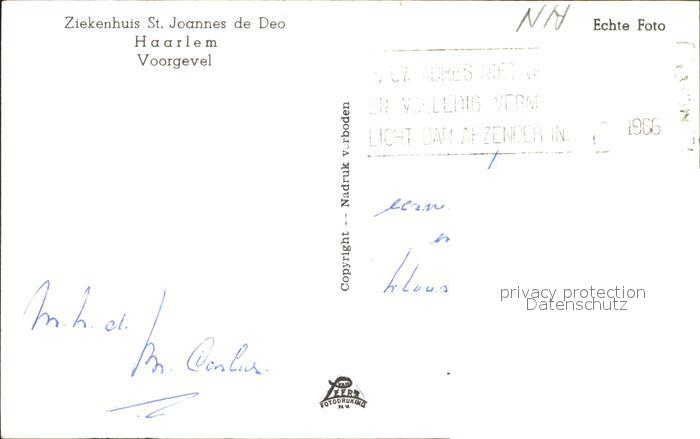 Ziekenhuis St. Joannes de Deo
Haarlem
Voorgevel
NH
Echte Foto
UW ADRES NIET
EN VOLLEDIG VERM
LICHT DAN AFZENDER IN.
1966
Copyright -- Nadruk verboden
en
Klaus
privacy protection
Datenschutz
M.h.d.
VAN LEER'S
FOTODRUKIND.
N.V.